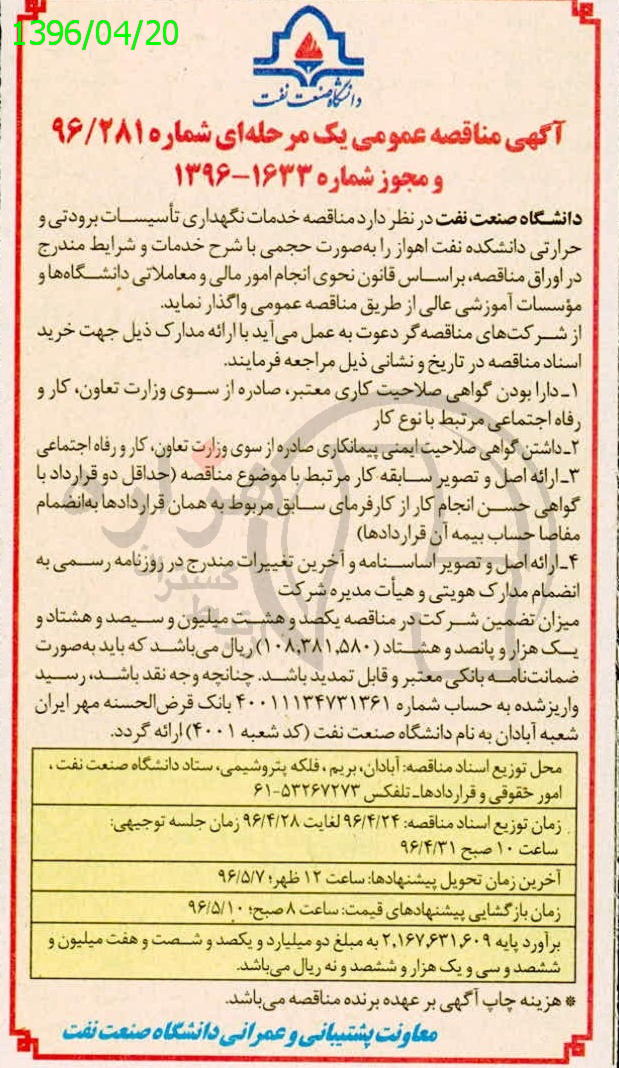 1396/04/20
دانشگاه صنعت نفت
آگهی مناقصه عمومی یک مرحله‌ای شماره ۹۶/۲۸۱
و مجوز شماره ۱۶۳۳-۱۳۹۶
دانشگاه صنعت نفت در نظر دارد مناقصه خدمات نگهداری تأسیسات برودتی و
حرارتی دانشکده نفت اهواز را به‌صورت حجمی با شرح خدمات و شرایط مندرج
در اوراق مناقصه، براساس قانون نحوی انجام امور مالی و معاملاتی دانشگاه‌ها و
مؤسسات آموزشی عالی از طریق مناقصه عمومی واگذار نماید.
از شرکت‌های مناقصه‌گر دعوت به عمل می‌آید با ارائه مدارک ذیل جهت خرید
اسناد مناقصه در تاریخ و نشانی ذیل مراجعه فرمایند.
۱ـ دارا بودن گواهی صلاحیت کاری معتبر، صادره از سوی وزارت تعاون، کار و
رفاه اجتماعی مرتبط با نوع کار
۲ـ داشتن گواهی صلاحیت ایمنی پیمانکاری صادره از سوی وزارت تعاون، کار و رفاه اجتماعی
۳ـ ارائه اصل و تصویر سابقه کار مرتبط با موضوع مناقصه (حداقل دو قرارداد با
گواهی حسن انجام کار از کارفرمای سابق مربوط به همان قراردادها به‌انضمام
مفاصا حساب بیمه آن قراردادها)
۴ـ ارائه اصل و تصویر اساسنامه و آخرین تغییرات مندرج در روزنامه رسمی به
انضمام مدارک هویتی و هیأت مدیره شرکت
میزان تضمین شرکت در مناقصه یکصد و هشت میلیون و سیصد و هشتاد و
یک هزار و پانصد و هشتاد (۱۰۸,۳۸۱,۵۸۰) ریال می‌باشد که باید به‌صورت
ضمانت‌نامه بانکی معتبر و قابل تمدید باشد. چنانچه وجه نقد باشد، رسید
واریز شده به حساب شماره ۴۰۰۱۱۱۳۴۷۳۱۳۶۱ بانک قرض‌الحسنه مهر ایران
شعبه آبادان به نام دانشگاه صنعت نفت (کد شعبه ۴۰۰۱) ارائه گردد.
محل توزیع اسناد مناقصه: آبادان، بریم، فلکه پتروشیمی، ستاد دانشگاه صنعت نفت،
امور حقوقی و قراردادها ـ تلفکس ۵۳۲۶۷۲۷۳-۶۱
زمان توزیع اسناد مناقصه: ۹۶/۴/۲۴ لغایت ۹۶/۴/۲۸ زمان جلسه توجیهی:
ساعت ۱۰ صبح ۹۶/۴/۳۱
آخرین زمان تحویل پیشنهادها: ساعت ۱۲ ظهر؛ ۹۶/۵/۷
زمان بازگشایی پیشنهادهای قیمت: ساعت ۸ صبح؛ ۹۶/۵/۱۰
برآورد پایه ۲,۱۶۷,۶۳۱,۶۰۹ به مبلغ دو میلیارد و یکصد و شصت و هفت میلیون و
ششصد و سی و یک هزار و ششصد و نه ریال می‌باشد.
* هزینه چاپ آگهی بر عهده برنده مناقصه می‌باشد.
معاونت پشتیبانی و عمرانی دانشگاه صنعت نفت